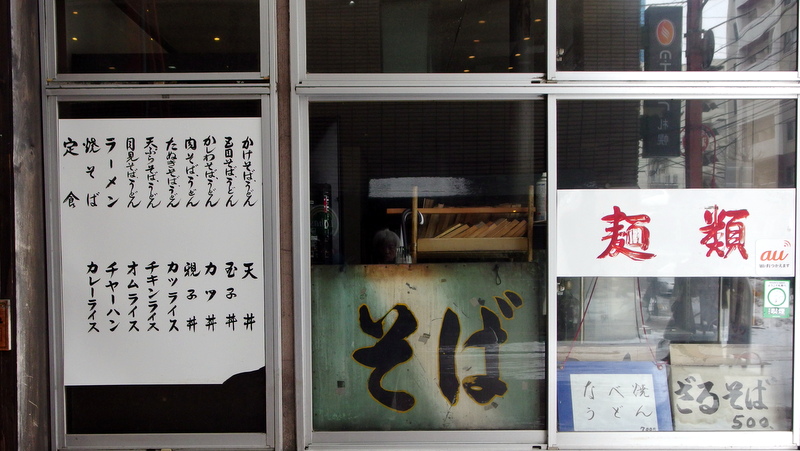 かけそばうどん
玉子そばうどん
かしわそばうどん
肉そばうどん
たぬきそばうどん
天ぷらそばうどん
月見そばうどん
ラーメン
焼そば
定食
天丼
玉子丼
カツ丼
親子丼
カツライス
チキンライス
オムライス
チャーハン
カレーライス
そば
麺類
au
なべ焼
うどん
ざるそば
500
札幌